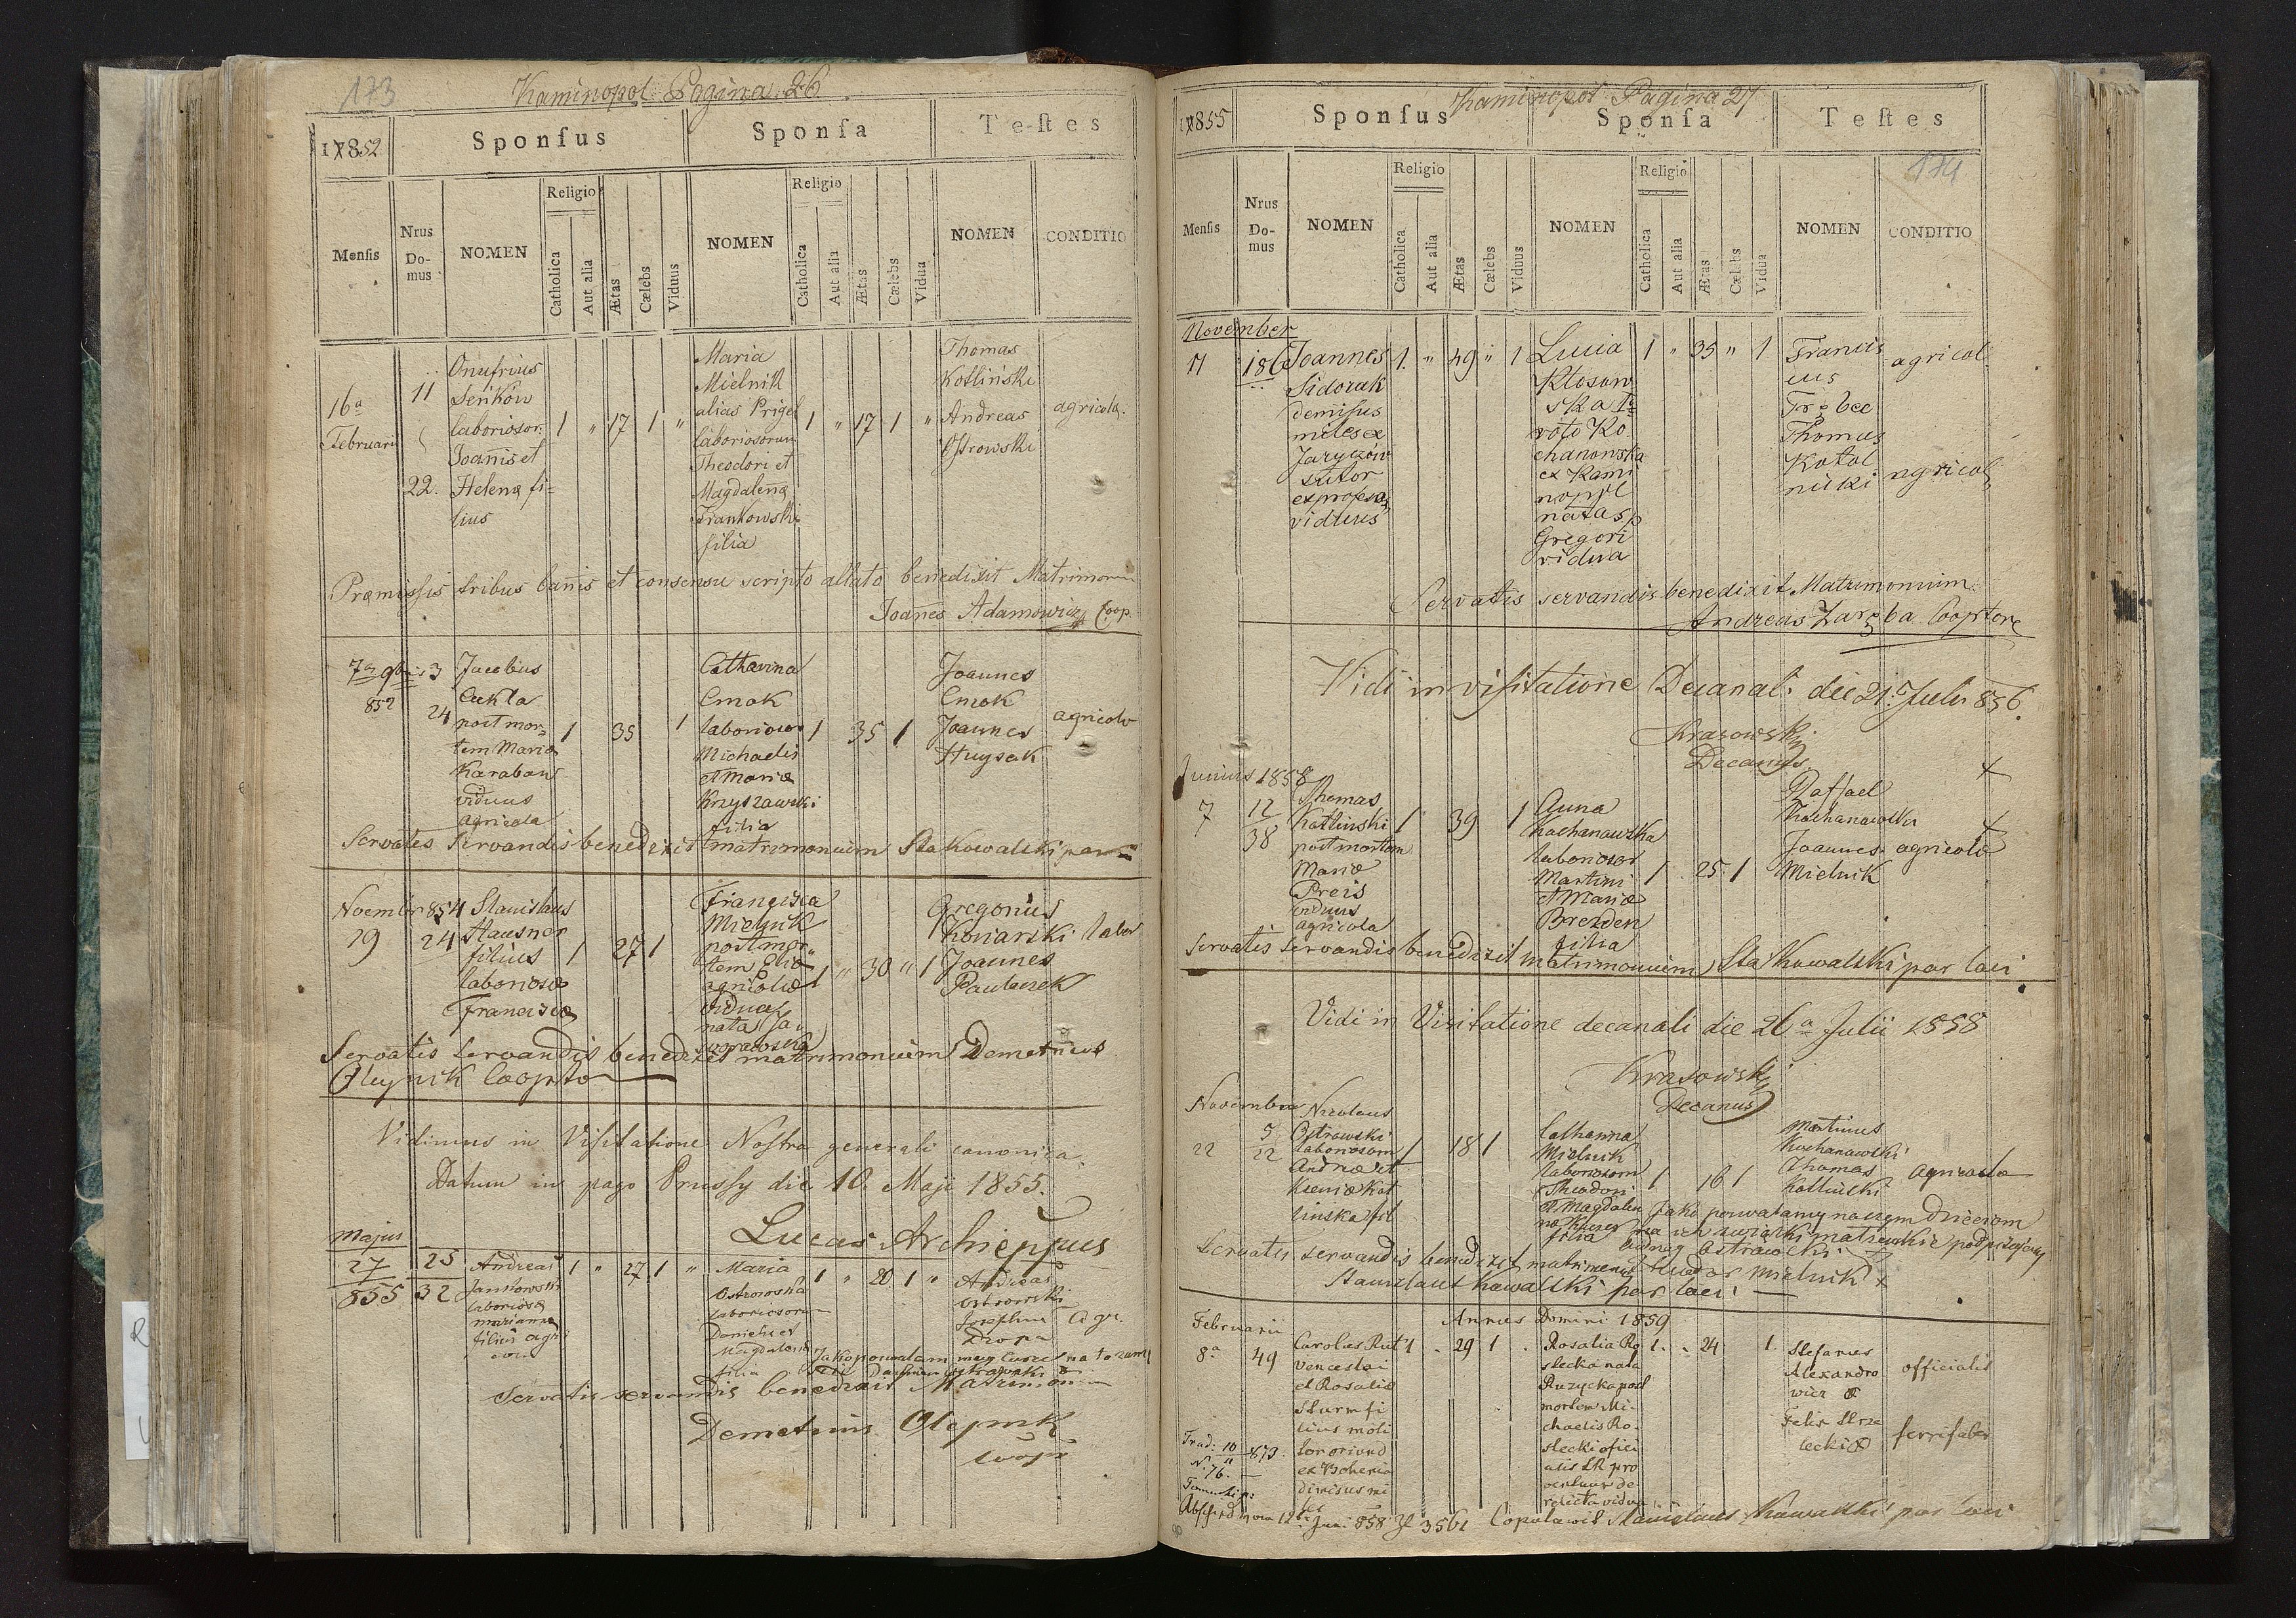 173
Kaminopol Pagina 26
17852
Sponsus
Sponsa
Testes
Mensis
Nrus Domus
NOMEN
Religio
Catholica
Aut alia
Ætas
Cælebs
Viduus
NOMEN
Religio
Catholica
Aut alia
Ætas
Cælebs
Vidua
NOMEN
CONDITIO
16a
Februarii
11
22.
Onufrius
Seńkow
laboriosor.
Joannis et
Helenæ fi=
lius
1 " 17 1 "
Maria
Mielnik
alias Prigel
laboriosorum
Theodori et
Magdalenæ
Frankowski
filia
1 " 17 1 "
Thomas
Kotliński
Andreas
Ostrowski
agricola.
Præmissis tribus bannis et consensu scripto allato benedixit Matrimonium
Joannes Adamowicz Coop.
7a 9bris
852
3
24
Jacobus
Cukla
post mor=
tem Mariæ
Karabans
viduus
agricola
1 35 1
Catharina
Cmok
laborioso
Michaelis
et Mariæ
Krzyszawski
filia
1 35 1
Joannes
Cmok
Joannes
Huysak
agricolæ
Servatis Servandis benedixit matrimonium Sta Kowalski par
Novembr 854
29
24
Stanislaus
Hausner
filius
laboriosæ
Franciscæ
1 27 1
Francisca
Mielnik
post mor
tem Eliæ
agricolæ
vidua
nata Ja
1 " 30 " 1
Gregorius
Konarski
Joannes
Pauluszek
labor
Servatis Servandis benedixit matrimonium Demetrius
Oleynik Cooptor
Vidimus in Visitatione Nostra generali canonica.
Datum in pago Prussy die 10. Maji 1855.
Lucas Archieppus
Majus
27
855
25
32
Andreas
Jankowski
laboriosæ
marianna
filius agri
cola
1 " 27 1 "
Maria
Ostrowska
laboriosorum
Danielis et
Magdalenæ
filia
1 " 20 1 "
Andreas
Ostrowski
Josephus
Dropa
agr.
Jako pozwalam mey Curce na to zamę
Daniel Ostrowski
Servatis servandis benedixit Matrimon
Demetrius Oleynik
coop
Kaminopol Pagina 27
17855
Sponsus
Sponsa
Testes
174
Mensis
Nrus Domus
NOMEN
Religio
Catholica
Aut alia
Ætas
Cælebs
Viduus
NOMEN
Religio
Catholica
Aut alia
Ætas
Cælebs
Vidua
NOMEN
CONDITIO
November
11
186
Joannes
Sidorak
demisus
miles ex
Jaryczów
sutor
ex profess
viduus
1. " 49 " 1
Lucia
Kłosow
ska 1o
voto Ko
chanowska
ex Kami
nopol
nata sp
Gregori
vidua
1 " 35 " 1
Francis
cus
Trębec
Thomas
Kotol
nicki
agricol
agricol
Servatis servandis benedixit Matrimonium
Andreas Zaręba Cooptore
Vidi in visitatione Decanali die 21. Julii 856.
Krasowski
Decanus
Junius 1858
7
12
38
Thomas
Kotlinski
post mortem
Mariæ
Preis
viduus
agricola
1 39 1
Anna
Kochanowska
laborioso
Martini
et Mariæ
Brezden
filia
1 25 1
Raffael
Kochanowski
Joannes
Mielnik
+
+
agricolæ
Servatis servandis benedixit matrimonium Sta Kowalski par loci
Vidi in Visitatione decanali die 26a Julii 1858
Krasowski
Decanus
Novembris
22
5
22
Nicolaus
Ostrowski
laboriosorum
Andreæ et
Kseniæ Kot
linska fil
1 18 1
Catharina
Mielnik
laboriosorum
Theodori
et Magdale
filia
1 16 1
Martinus
Kochanowski
Thomas
Kotlinski
agricolæ
Jako pozwalamy naszym Dzieciom
na ich związki małżeńskie podpisujemy
Andruy Ostrowski +
Teodor Mielnik +
Servatis servandis benedixit matrimonium
Stanislaus Kowalski par loci
Annus Domini 1859
Februarii
8a
49
Carolus Rut
Venceslai
et Rosalie
Sturm fi
lius moli
tor oriund
ex Bohemia
dimisus mi
les
1 . 29 1 .
Rosalia Ro
slecka nata
Ruzycka post
mortem Mi-
chaelis Ro-
slecki offici
alis
relicta vidua
1. . 24 1.
Stefanus
Alexandro
wicz
Felix Strze
lecki
officialis
ferrifaber
Trad: 10
873.
N. 76.
Abschied vom 12 Jun. 858 Zl 3561 Copulavit Stanislaus Kowalski par loci